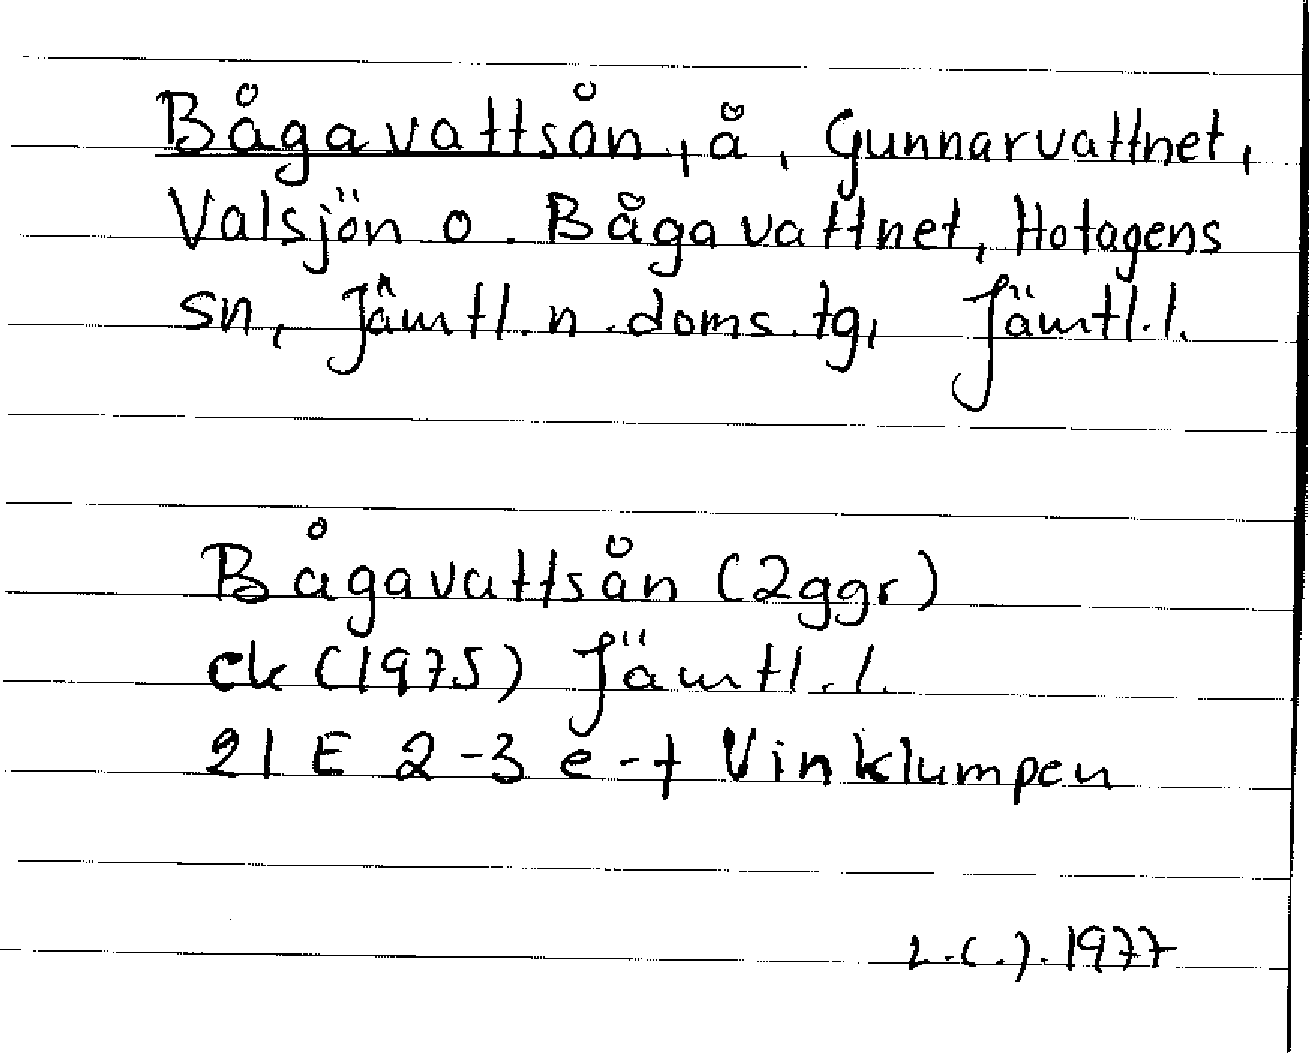 Bågavattsån, å, Gunnarvattnet,
Valsjön o. Bågavattnet, Hotagens
sn, Jämtl. n. doms. tg, Jämtl. l.
Bågavattsån (2ggr)
ek (1975) Jämtl. l.
21 E 2-3 e-f Vinklumpen
1977